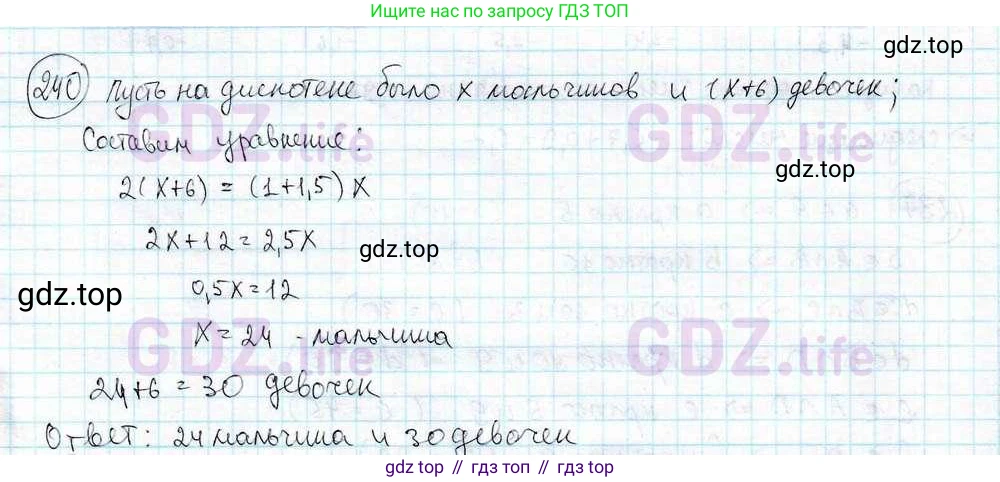 Ищите нас по запросу ГДЗ ТОП
gdz.top
240 Пусть на дискотеке было x мальчиков и (x+6) девочек;
Составим уравнение:
GDZ.life GDZ.life
gdz.top
2(x+6) = (1+1,5)x
2x+12=2,5x
gdz.top
0,5x=12
gdz.top
x=24 - мальчика
GDZ.life GDZ.life
24+6=30 девочек
Ответ: 24 мальчика и 30 девочек
gdz.top
gdz top // гдз топ // gdz top